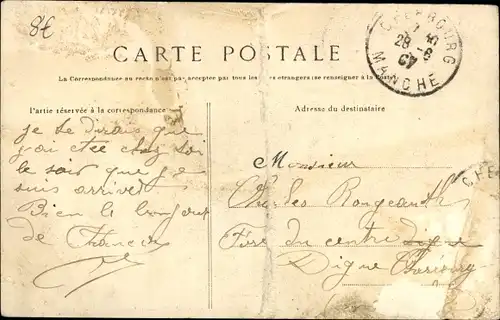 8€
CARTE POSTALE
CHERBOURG
28 - 6
07
MANCHE
La Correspondance au recto n'est pas acceptée par tous les pays étrangers (se renseigner à la Poste)
Partie réservée à la correspondance
Adresse du destinataire
je te dirais que
j'ai été chez toi
le soir que je
suis arrivé
Bien le bonjour
de Francis
Monsieur
Charles
Digue Cherbourg
CHE